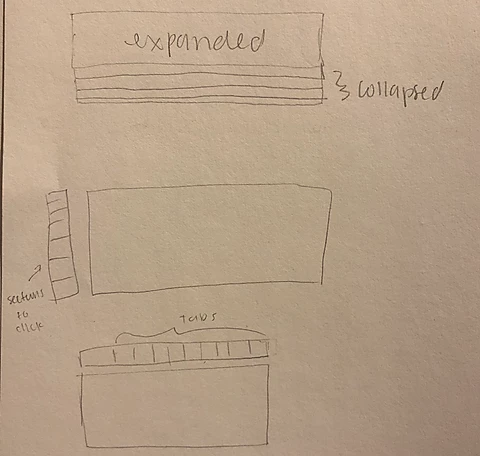 expanded
collapsed
sections
to
click
Tabs